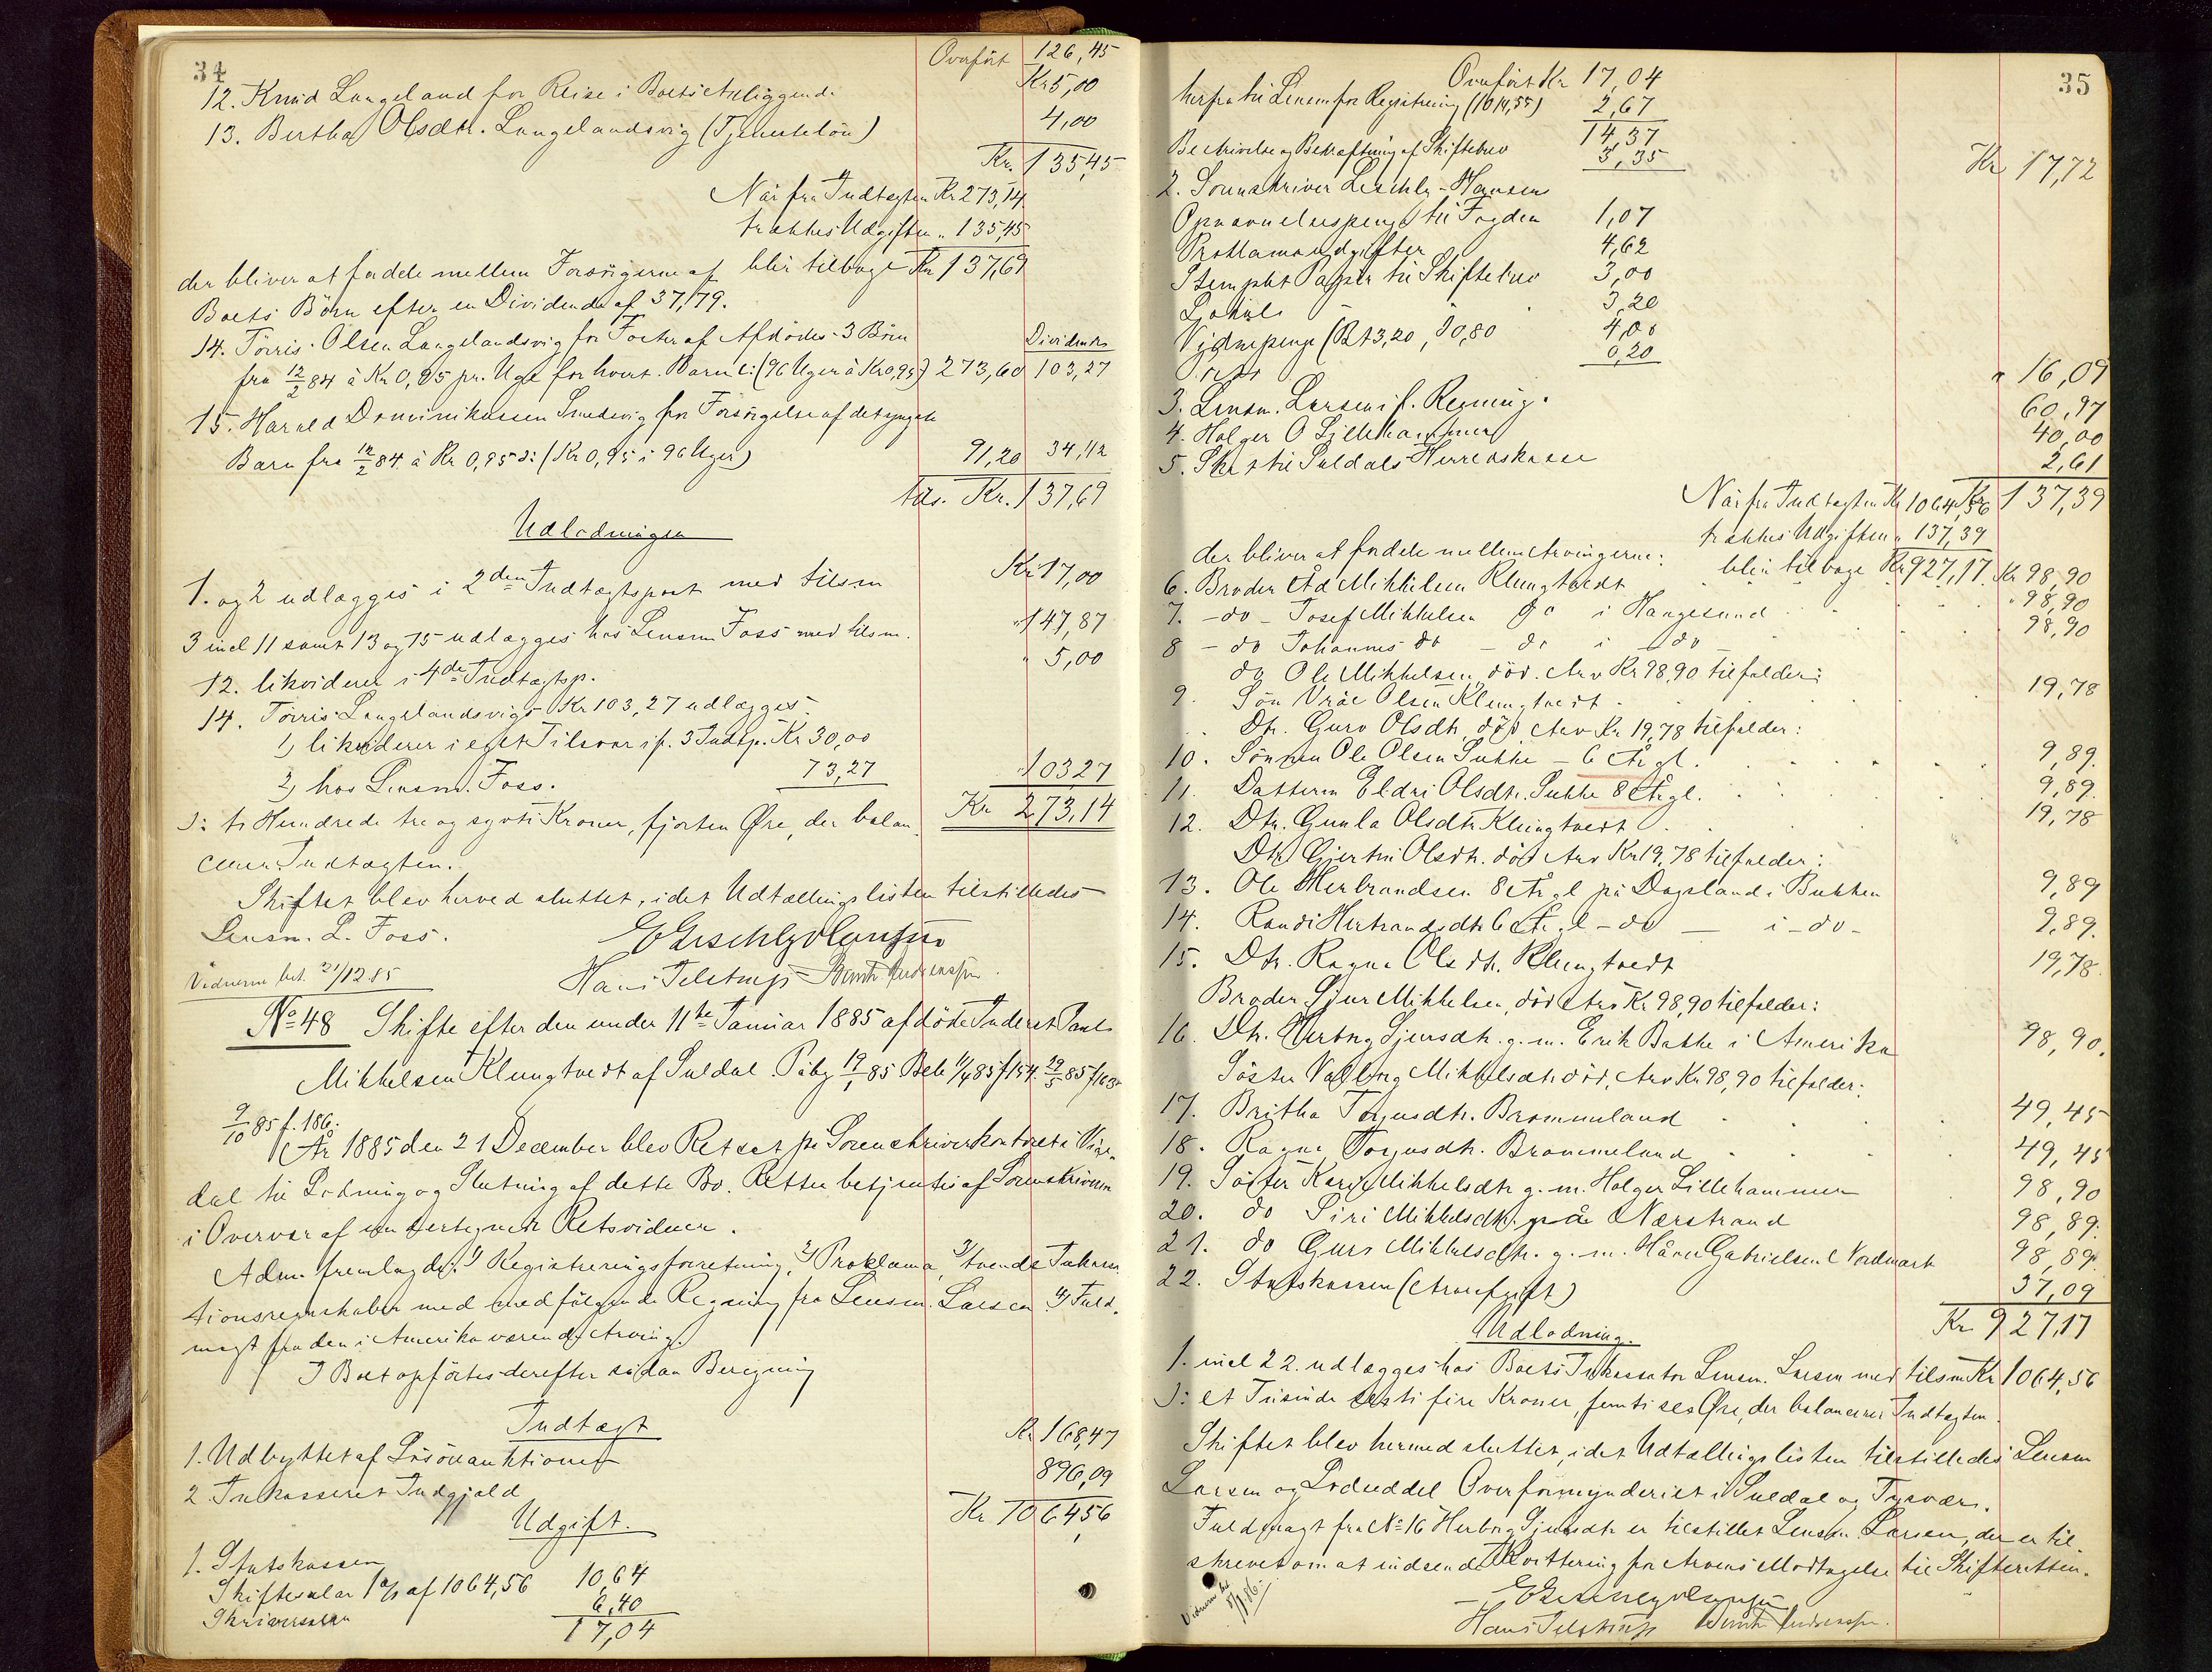 34
Overført 126,45
12. Knud Langeland for Reise i Boets Anliggende Kr 5,00
13. Bertha Olsdtr. Langelandsvig (Tjenesteløn) 4,00
Kr. 135,45
Når fra Indtægten Kr 273,14
trækkes Udgiften " 135,45
der bliver at fordele mellem Forsørgerne af blir tilbage Kr 137,69
Boets Börn efter en Dividende af 37,79.
14. Törris Olsen Langelandsvig for Foster af Afdödes 3 Börn Dividende
fra 12/2 84 à Kr 0,95 pr. Uge for hvert Barn (96 Uger à Kr 0,95) 273,60 103,27
15. Harald Dominikussen Smedvig for Forsørgelse af det yngste
Barn fra 12/2 84 à Kr 0,95 ɔ: (Kr 0,95 i 96 Uger) 91,20 34,42
tils. Kr. 137,69
Udlodningen
1. og 2 udlægges i 2den Indtægtspost med tilsm Kr 17,00
3 incl 11 samt 13 og 15 udlægges hos Lensm Foss med tilsm. " 147,87
12. likviderer i 4de Indtægtsp. " 5,00
14. Törris Langelandsvigs Kr 103,27 udlægges:
1) likviderer i eget Tilsvar if. 3 Indtp. Kr 30,00
2) hos Lensm. Foss. 73,27 " 103,27
ɔ: to Hundrede tre og sytti Kroner, fjorten Øre, der balan- Kr 273,14
cerer Indtægten.
Skiftet blev herved sluttet, idet Udtællingslisten tilstilledes
Lensm. L. Foss.
Vidnerne bet. 21/12 85 Hans Telstrup
No 48 Skifte efter den under 11te Januar 1885 afdöde Inderst Paul
Mikkelsen Klungtvedt af Suldal. Påbg 19/1 85 Beb 1/4 85 f 154. 29/5 85 f 163
9/10 85 f. 186.
År 1885 den 21 December blev Ret sat på Sorenskriverkontoret i Vige-
dal til Lodning og Slutning af dette Bo. Retten betjentes af Sorenskriveren
i Overvær af undertegnede Retsvidner.
Adm. fremlagde: 1) Registreringsforretning, 2) Proklama, 3) tvende Inkassa
tionsregnskaber med medfølgende Regning fra Lensm. Larsen 4) Fuld-
magt fra den i Amerika værende Arving.
I Boet opførtes derefter sådan Beregning
Indtægt
1. Udbyttet af Løsöreauktionen Kr 168,47
2 Inkasseret Indgjæld 896,09
Kr 1064,56
Udgift.
1. Statskassen
Skiftesalær 1 % af 1064,56 10,64
Skriversalær 6,40
17,04
35
Overført Kr 17,04
herfra til Lensm for Registrering (1014,55) 2,67
14,37
Beskrivelse og Bekræftning af Skiftebrev 3,35 Kr 17,72
2. Sorenskriver Leschly-Hansen
Opnævnelsespenge til Fogden 1,07
Proklamaudgifter 4,62
Stemplet Papir til Skiftebrev 3,00
3,20
Vidnepenge (B 3,20, 0,80 4,00
Porto 0,20 " 16,09
3. Lensm. Larsen if. Regning. 60,97
4. Holger O Lillehammer 40,00
5. Skat til Suldals Herredskasse 2,61
Når fra Indtægten Kr 1064,56 Kr 137,39
trækkes Udgiften " 137,39
der bliver at fordele mellem Arvingerne: blir tilbage Kr 927,17
6. Broder Åd Mikkelsen Klungtvedt Kr 98,90
7. - do - Josef Mikkelsen do i Haugesund " 98,90
8 - do Johannes do - do i do - 98,90
do Ole Mikkelsen, död. Arv Kr 98,90 tilfalder:
9. Sön Vråe Olsen Klungtvedt 19,78
Dtr. Guro Olsdtr, död Arv Kr 19,78 tilfalder:
10. Sönnen Ole Olsen Sukke - 6 År gl. 9,89.
11. Datteren Eldri Olsdtr. Sukke 8 År gl. 9,89.
12. Dtr. Gunla Olsdtr Klungtvedt 19,78
Dtr Gjertru Olsdtr. död Arv Kr 19,78 tilfalder:
13. Ole Herbrandsen 8 År gl på Dagsland i Bukken 9,89
14. Randi Herbrandsdtr 6 År gl - do - i - do - 9,89.
15. Dtr. Ragna Olsdtr. Klungtvedt 19,78.
Broder Sjur Mikkelsen, död Arv Kr 98,90 tilfalder:
16. Dtr. Herborg Sjursdtr. g. m. Erik Bakke i Amerika 98,90.
Söster Valborg Mikkelsdtr död, Arv Kr 98,90 tilfalder:
17. Britha Torjusdtr. Brommeland 49,45
18. Ragna Torjusdtr. Brommeland 49,45
19. Söster Kari Mikkelsdtr g. m. Holger Lillehammer 98,90
20. do Siri Mikkelsdtr. på Nærstrand 98,89.
21. do Guri Mikkelsdtr. g. m. Håvar Gabrielsen Nordmark 98,89.
22. Statskassen (Arveafgift) 37,09
Kr 927,17
Udlodning.
1. incl 22. udlægges hos Boets Inkassator Lensm. Larsen med tilsm Kr 1064,56
ɔ: et Tusinde seksti fire Kroner, femti sex Øre, der balancerer Indtægten.
Skiftet blev hermed sluttet, idet Udtællingslisten tilstilledes Lensm
Larsen og Lodseddel Overformynderiet i Suldal og Tysvær.
Fuldmagt fra No 16 Herborg Sjursdtr er tilstillet Lensm. Larsen, der er til-
skrevet om at indsende Kvittering for Arvens Modtagelse til Skifteretten.
Vidnerne bet
Hans Telstrup